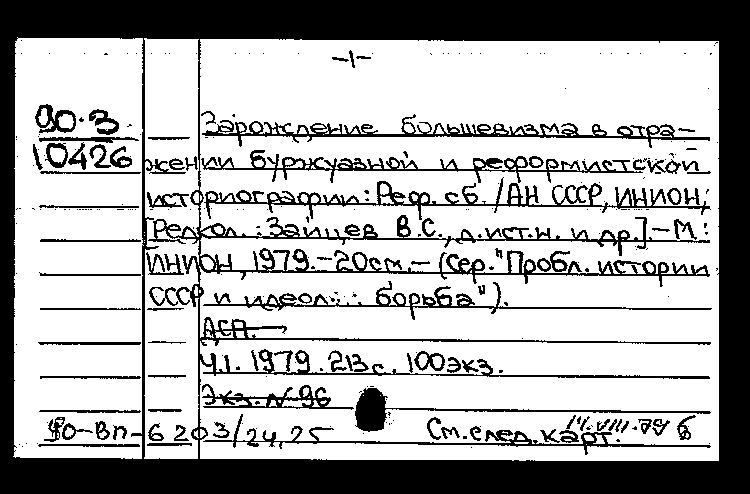 -1-
90.3
10426
Зарождение большевизма в отра-
жении буржуазной и реформистской
историографии: Реф. сб. /АН СССР, ИНИОН;
[Редкол.: Зайцев В.С., д.ист.н. и др.] - М.:
ИНИОН, 1979. - 20см. - (Сер. "Пробл. истории
СССР и идеол. борьба").
ДСП.
Ч.1. 1979. 213 с. 100экз.
Экз. № 96
ФО-Вп-6203/24,25 См. след. карт.
14.VIII.79